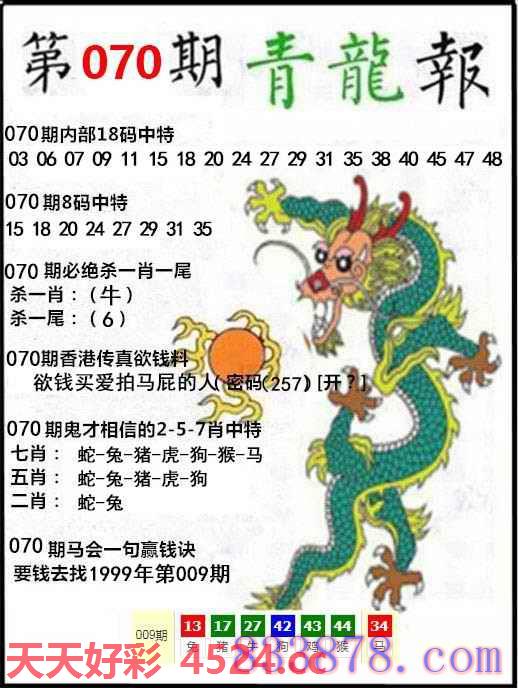 第070期青龍報
070期内部18码中特
03 06 07 09 11 15 18 20 24 27 29 31 35 38 40 45 47 48
070期8码中特
15 18 20 24 27 29 31 35
070期必绝杀一肖一尾
杀一肖：（牛）
杀一尾：（6）
070期香港传真欲钱料
欲钱买爱拍马屁的人(密码(257)[开？]
070期鬼才相信的2-5-7肖中特
七肖： 蛇-兔-猪-虎-狗-猴-马
五肖： 蛇-兔-猪-虎-狗
二肖： 蛇-兔
070期马会一句赢钱诀
要钱去找1999年第009期
009期 13 17 27 42 43 44 34
兔 猪 牛 狗 鸡 猴 马
天天好彩 4524.cc
878.com